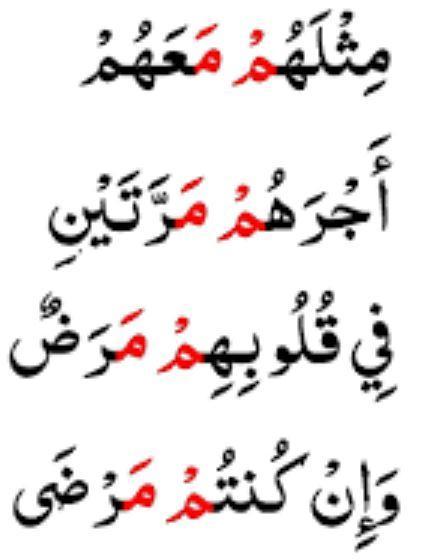 مِثْلَهُمْ مَعَهُمْ
أَجْرَهُمْ مَرَّتَيْنِ
فِي قُلُوبِهِمْ مَرَضٌ
وَإِنْ كُنتُمْ مَرْضَى